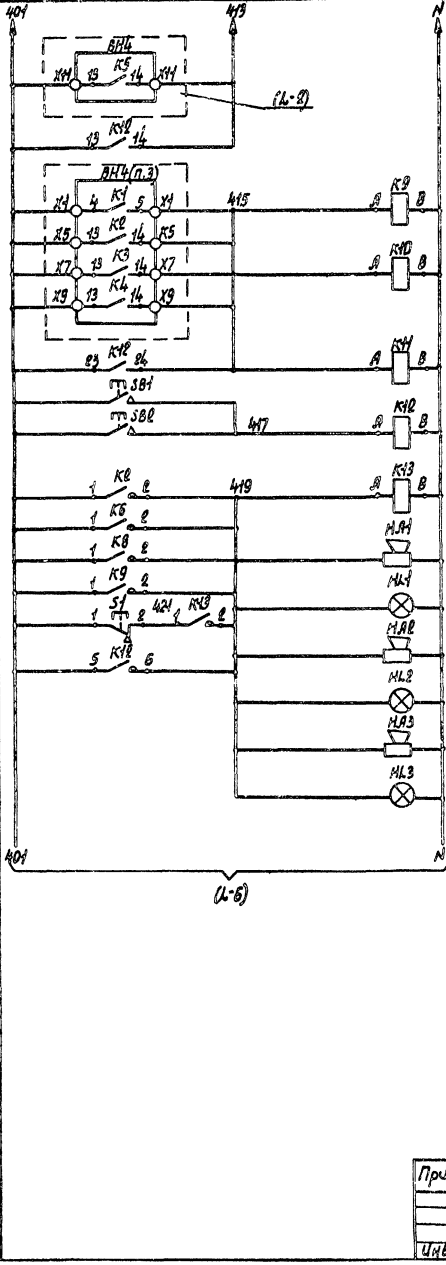 401 413 N
ВН4
Х11 13 К5 14 Х11
(L-2)
13 К12 14
ВН4(п.3)
Х1 4 К1 5 Х1 415 А К9 В
Х5 13 К2 14 К5
Х7 13 К3 14 Х7 А К10 В
Х9 13 К4 14 Х9
23 К12 24 А К11 В
SB1
SB2 417 А К12 В
1 К2 2 419 А К13 В
1 К6 2
1 К8 2 НА1
1 К9 2 HL1
1 S1 2 421 1 К13 2 НА2
5 К12 6
HL2
НА3
HL3
401 N
(L-6)
При
Инв